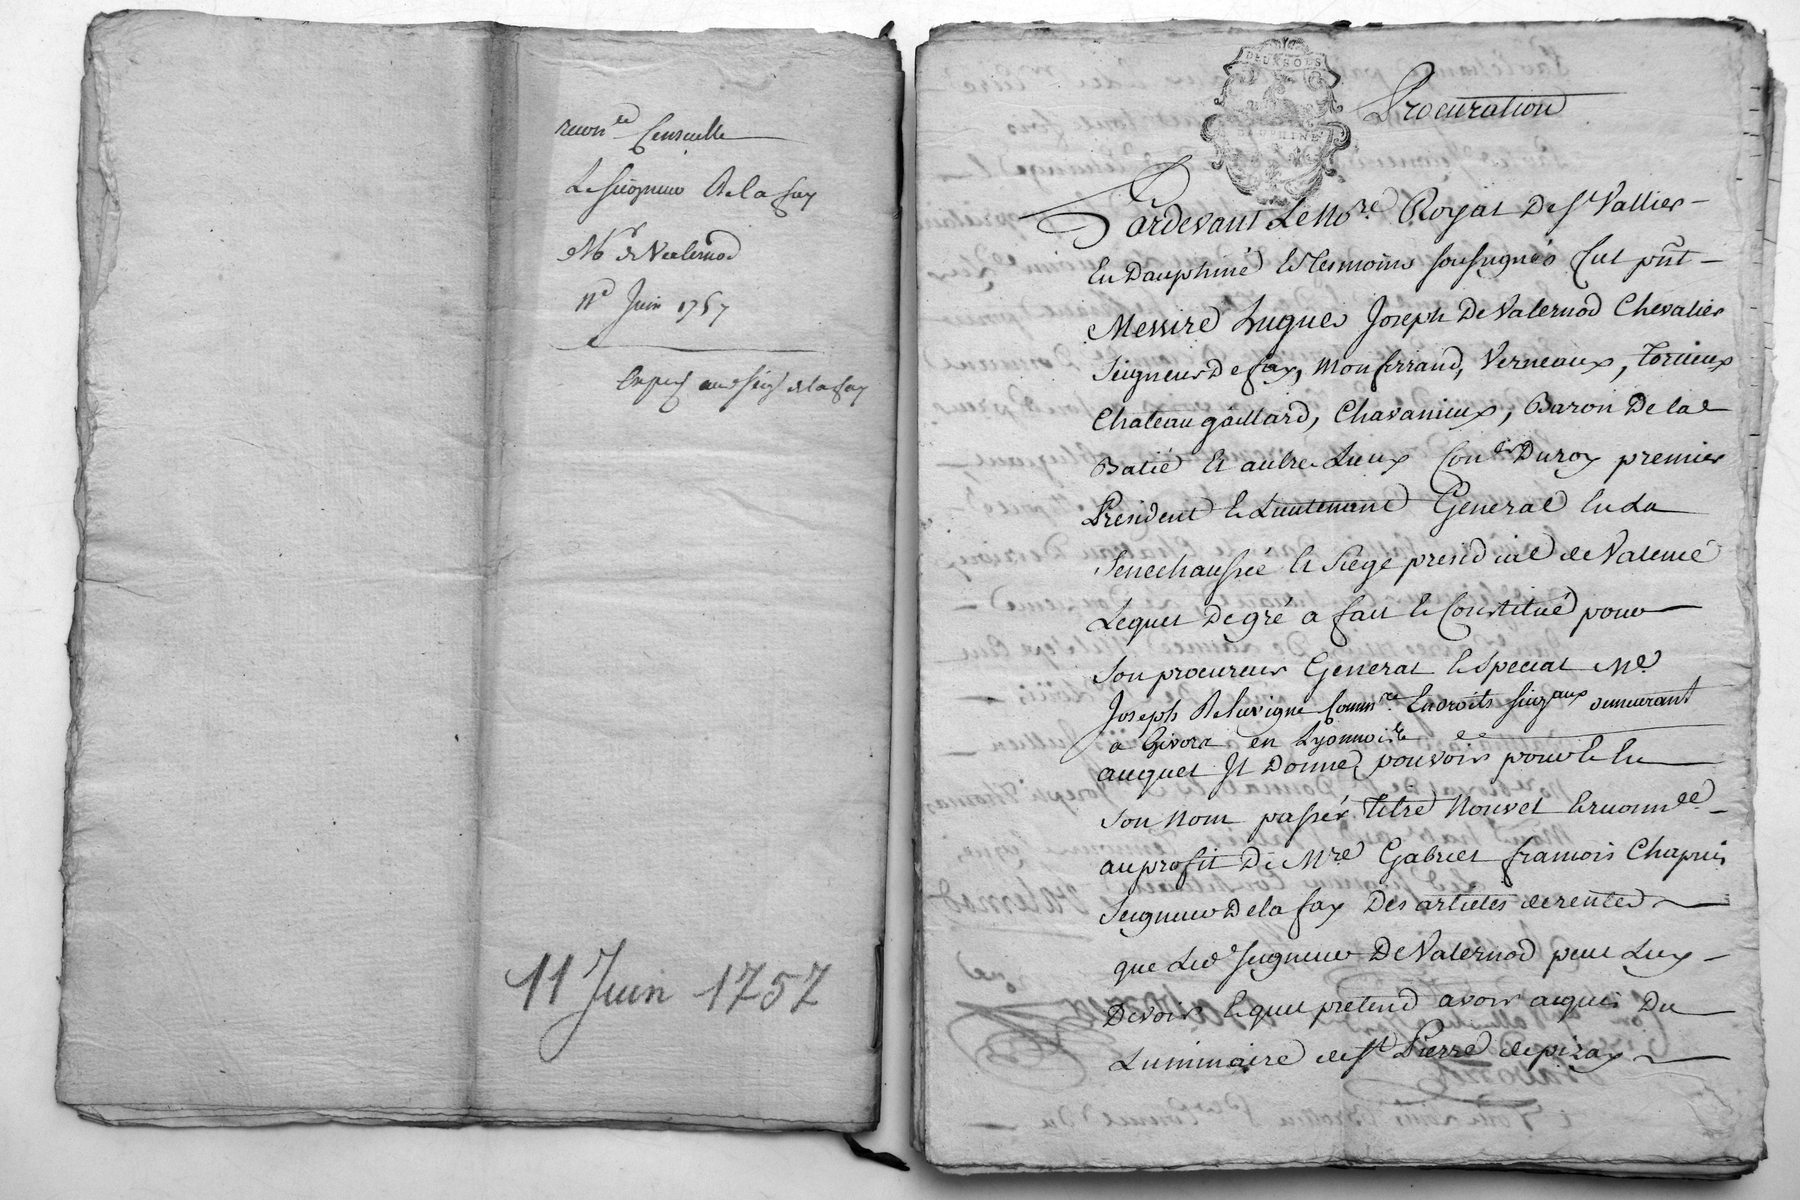 recon.ce Censuelle
Le Seigneur De la fay
Mr de Vallernod
11e Juin 1757
au seigr de la fay
11 Juin 1757
DEUX SOLS
DAUPHINÉ
Procuration
Pardevant Le No.re Royal De St Vallier
En Dauphiné Et tesmoins soussignés fut pñt
Messire hugues Joseph De Valernod Chevalier
Seigneur De fay, Monferrand, Verneaux, Torcieux
Chateau gaillard, Chavanieux, Baron De la
Batie Et autres Lieux Con.er Du roy premier
President Et Lieutenant General En La
Senechaussée Et Siege presidial de Valence
Lequel De gré a fait Et Constitué pour
Son procureur General Et Special Me
Joseph Delavigne Comm.re En droits Seig.aux demeurant
a Givors en Lyonnois
auquel Il Donne pouvoir pour Et En
Son Nom passer Titre Nouvel Et reconn.ce
au profit De M.re Gabriel francois Chapuis
Seigneur De la fay Des articles de rentes
que Led. Seigneur De Valernod peut Luy
Devoir Et quil pretend avoir acquis Du
Luminaire de St Pierre de pizay